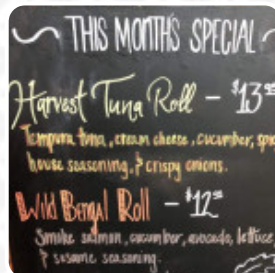 THIS MONTH'S SPECIAL
Harvest Tuna Roll - $13
Tempura tuna, cream cheese, cucumber,
house seasoning, & crispy onions.
Wild Bengal Roll - $12
Smoke salmon, cucumber, avocado, lettuce
& sesame seasoning.